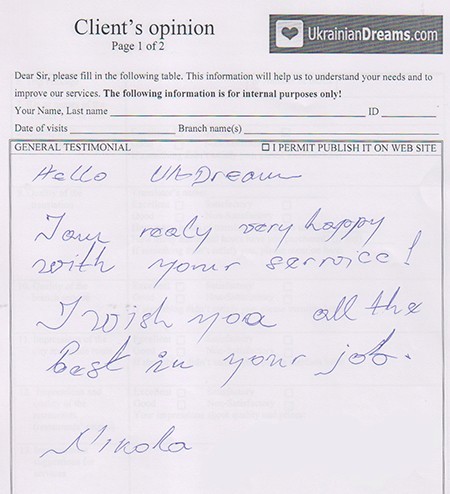 Client's opinion
Page 1 of 2
UkrainianDreams.com
Dear Sir, please fill in the following table. This information will help us to understand your needs and to
improve our services. The following information is for internal purposes only!
Your Name, Last name ID
Date of visits Branch name(s)
GENERAL TESTIMONIAL ☐ I PERMIT PUBLISH IT ON WEB SITE
Hello UA-Dream
I am realy very happy
with your serrvice!
I wish you all the
best in your job.
Nikola